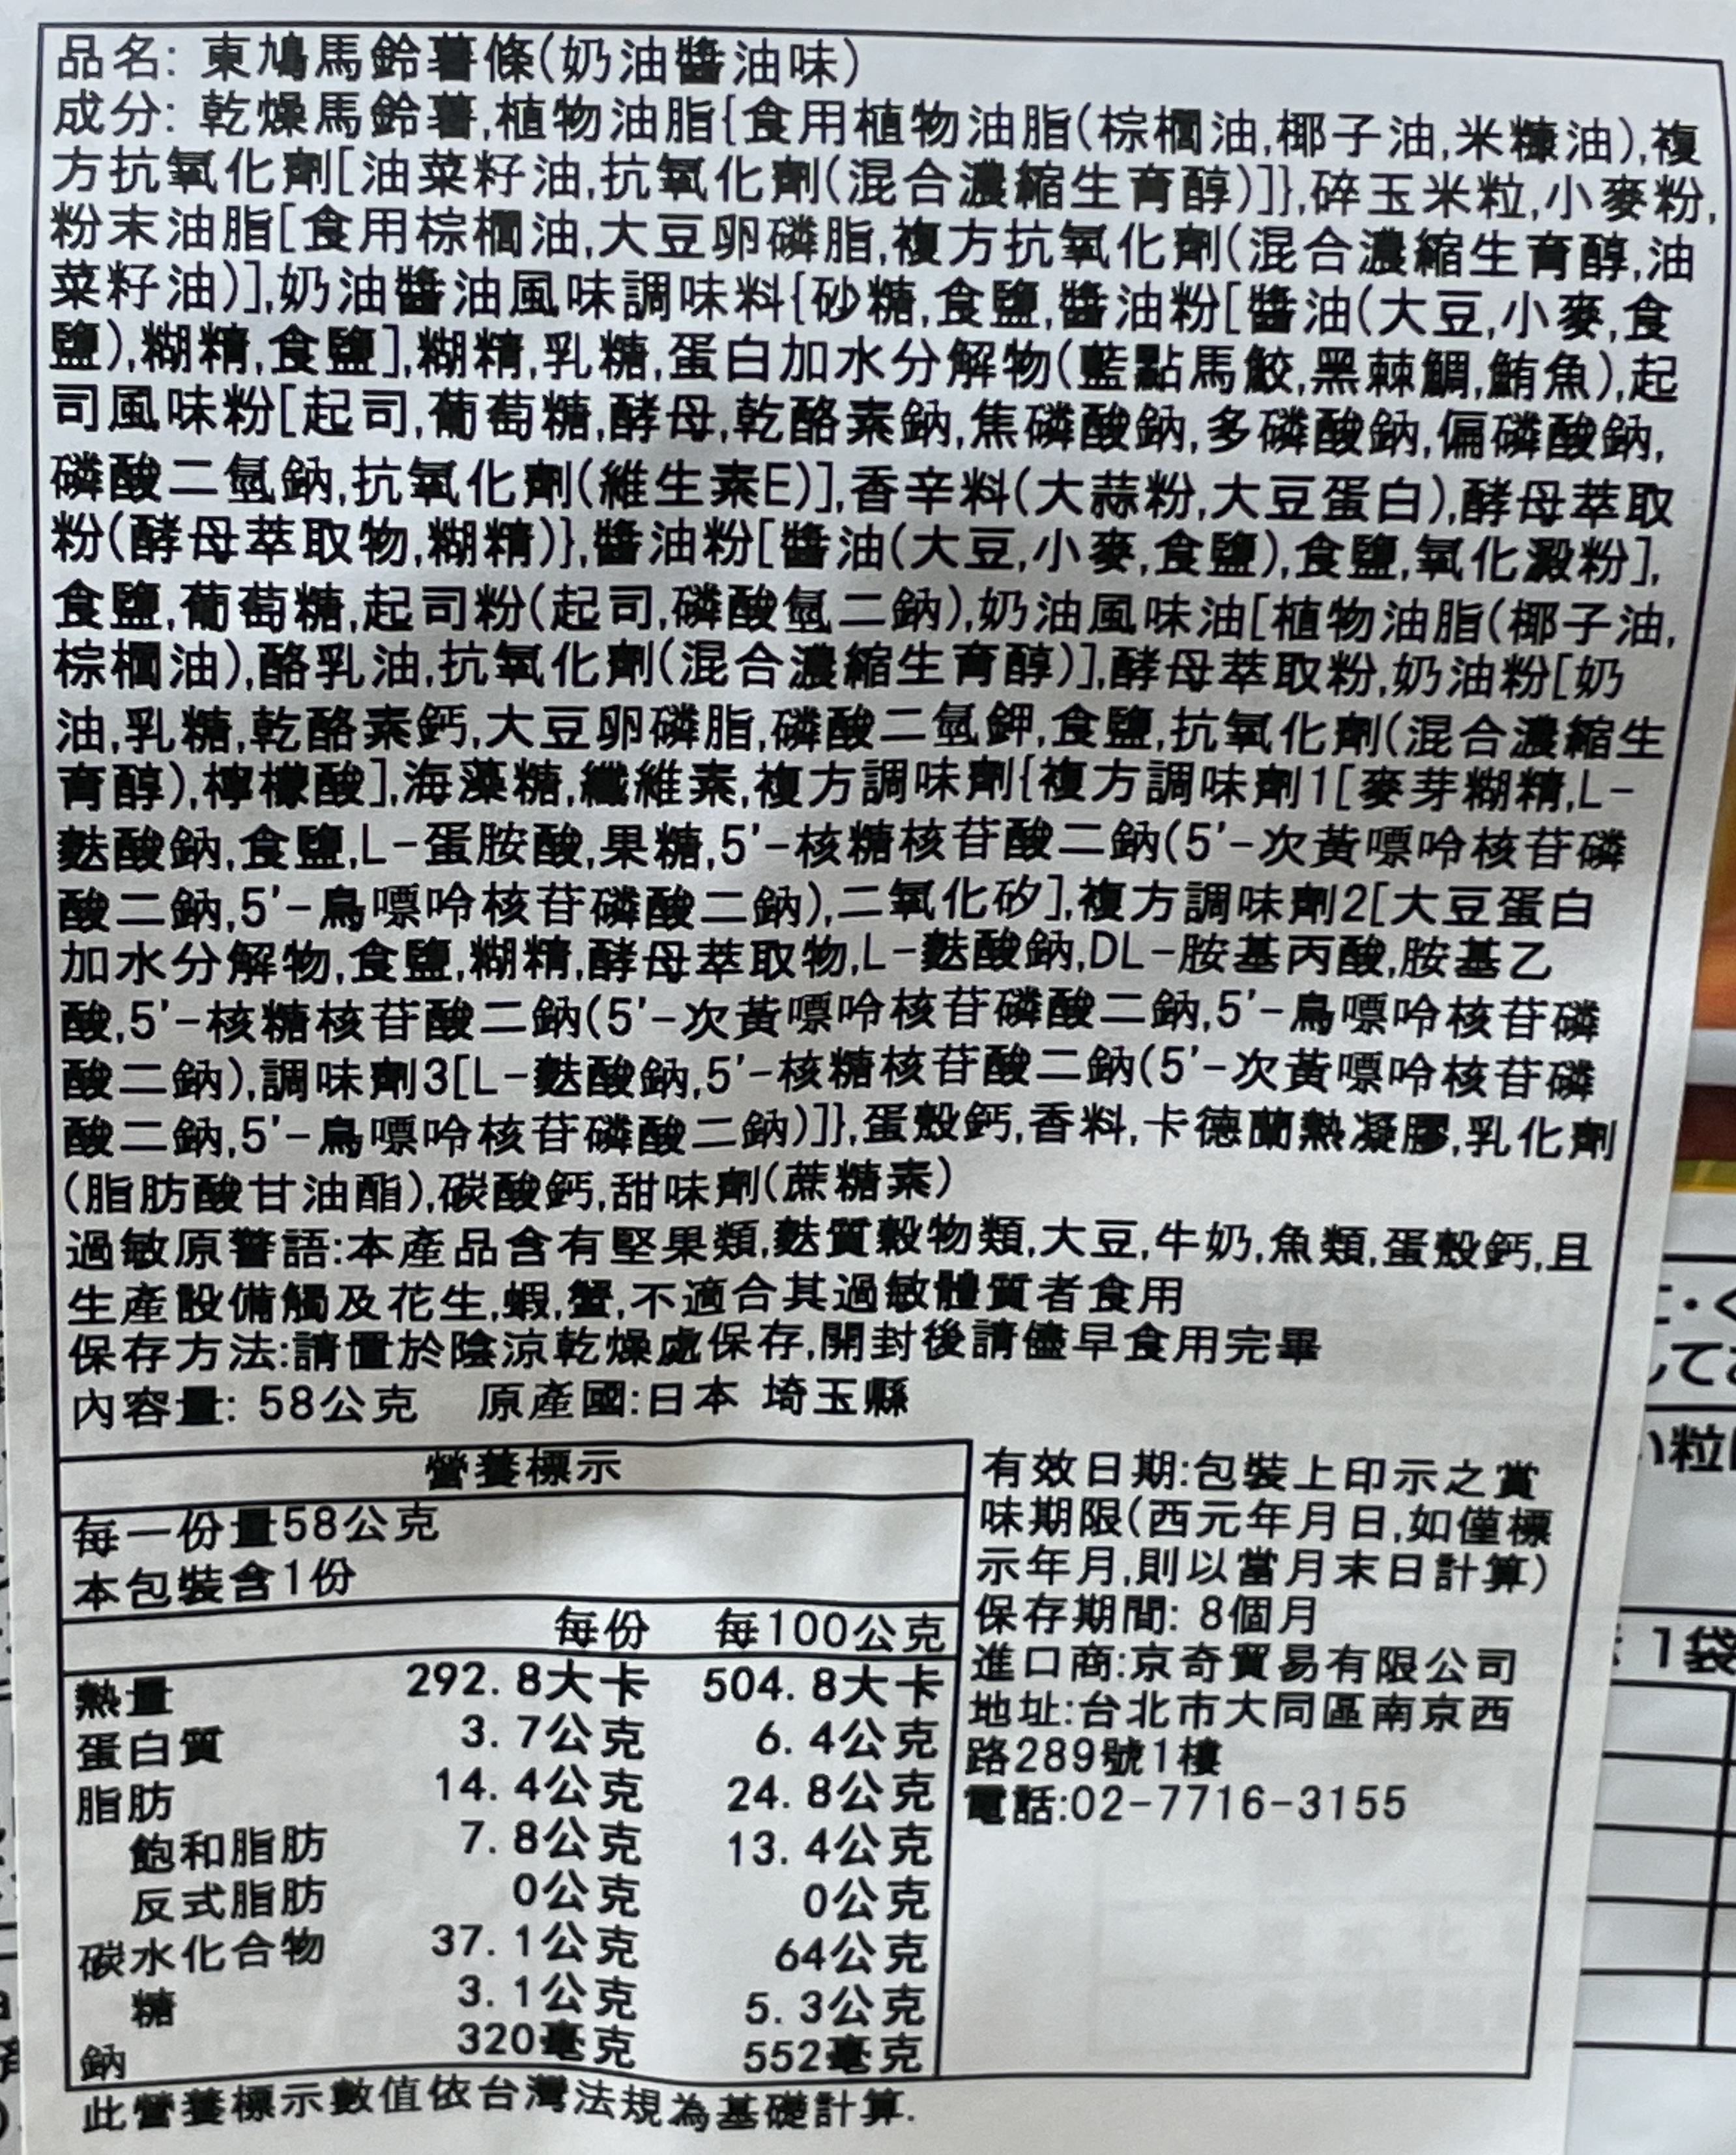 品名: 東鳩馬鈴薯條(奶油醬油味)
成分: 乾燥馬鈴薯,植物油脂{食用植物油脂(棕櫚油,椰子油,米糠油),複
方抗氧化劑[油菜籽油,抗氧化劑(混合濃縮生育醇)]},碎玉米粒,小麥粉,
粉末油脂[食用棕櫚油,大豆卵磷脂,複方抗氧化劑(混合濃縮生育醇,油
菜籽油)],奶油醬油風味調味料{砂糖,食鹽,醬油粉[醬油(大豆,小麥,食
鹽),糊精,食鹽],糊精,乳糖,蛋白加水分解物(藍點馬鮫,黑棘鯛,鮪魚),起
司風味粉[起司,葡萄糖,酵母,乾酪素鈉,焦磷酸鈉,多磷酸鈉,偏磷酸鈉,
磷酸二氫鈉,抗氧化劑(維生素E)],香辛料(大蒜粉,大豆蛋白),酵母萃取
粉(酵母萃取物,糊精)},醬油粉[醬油(大豆,小麥,食鹽),食鹽,氧化澱粉],
食鹽,葡萄糖,起司粉(起司,磷酸氫二鈉),奶油風味油[植物油脂(椰子油,
棕櫚油),酪乳油,抗氧化劑(混合濃縮生育醇)],酵母萃取粉,奶油粉[奶
油,乳糖,乾酪素鈣,大豆卵磷脂,磷酸二氫鉀,食鹽,抗氧化劑(混合濃縮生
育醇),檸檬酸],海藻糖,纖維素,複方調味劑{複方調味劑1[麥芽糊精,L-
麩酸鈉,食鹽,L-蛋胺酸,果糖,5'-核糖核苷酸二鈉(5'-次黃嘌呤核苷磷
酸二鈉,5'-鳥嘌呤核苷磷酸二鈉),二氧化矽],複方調味劑2[大豆蛋白
加水分解物,食鹽,糊精,酵母萃取物,L-麩酸鈉,DL-胺基丙酸,胺基乙
酸,5'-核糖核苷酸二鈉(5'-次黃嘌呤核苷磷酸二鈉,5'-鳥嘌呤核苷磷
酸二鈉),調味劑3[L-麩酸鈉,5'-核糖核苷酸二鈉(5'-次黃嘌呤核苷磷
酸二鈉,5'-鳥嘌呤核苷磷酸二鈉)]},蛋殼鈣,香料,卡德蘭熱凝膠,乳化劑
(脂肪酸甘油酯),碳酸鈣,甜味劑(蔗糖素)
過敏原警語:本產品含有堅果類,麩質穀物類,大豆,牛奶,魚類,蛋殼鈣,且
生產設備觸及花生,蝦,蟹,不適合其過敏體質者食用
保存方法:請置於陰涼乾燥處保存,開封後請儘早食用完畢
內容量: 58公克 原產國:日本 埼玉縣
營養標示
每一份量58公克
本包裝含1份
每份 每100公克
熱量 292.8大卡 504.8大卡
蛋白質 3.7公克 6.4公克
脂肪 14.4公克 24.8公克
飽和脂肪 7.8公克 13.4公克
反式脂肪 0公克 0公克
碳水化合物 37.1公克 64公克
糖 3.1公克 5.3公克
鈉 320毫克 552毫克
此營養標示數值依台灣法規為基礎計算.
有效日期:包裝上印示之賞
味期限(西元年月日,如僅標
示年月,則以當月末日計算)
保存期間: 8個月
進口商:京奇貿易有限公司
地址:台北市大同區南京西
路289號1樓
電話:02-7716-3155
1袋